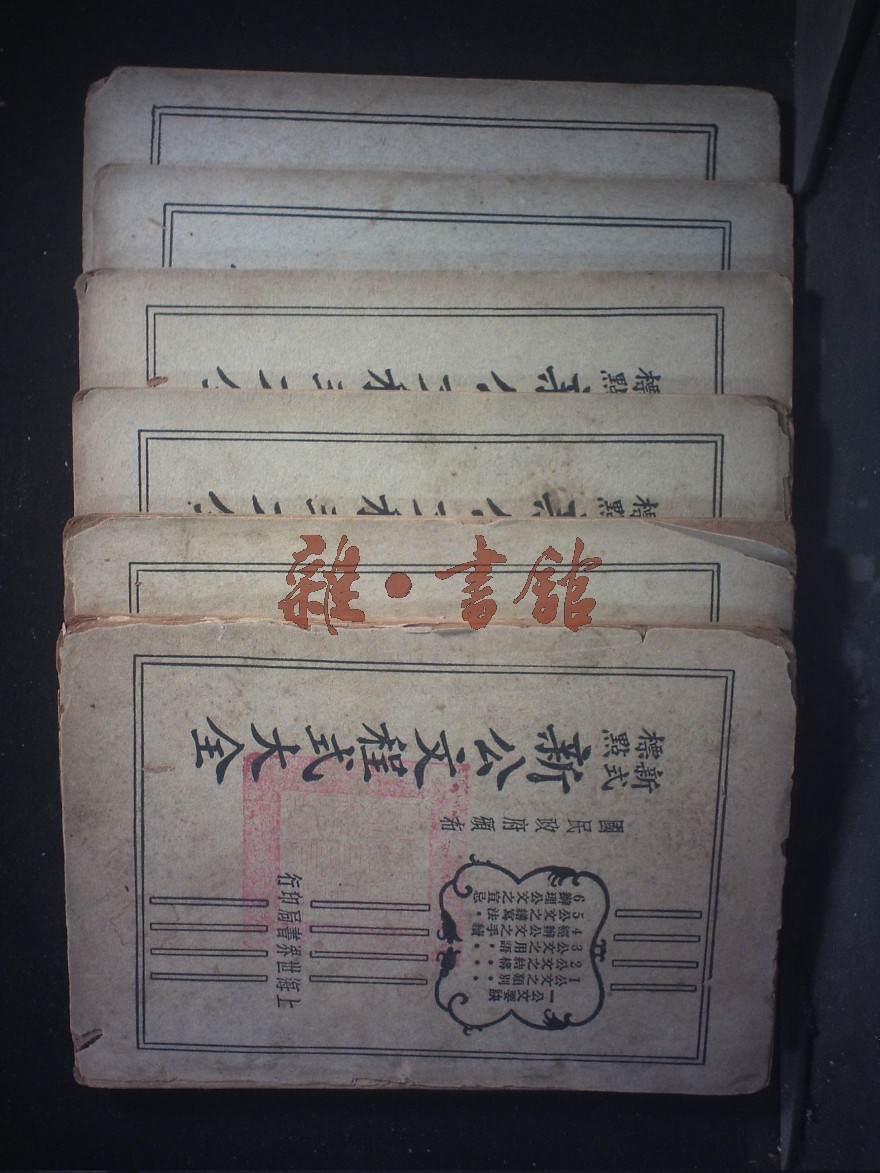 標點
標點
雜·書館
新式標點
新公文程式大全
國民政府頒布
一公文要訣
1公文之類別••
2公文之結構••
3公文之用語••
4經辦公文之手續
5公文之繕寫法•
6辦理公文之宜忌
上海世界書局印行